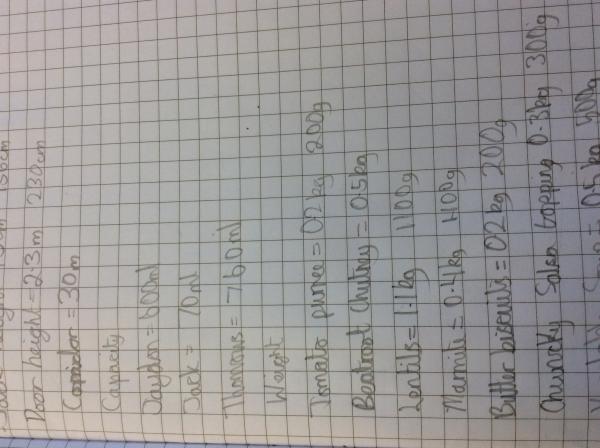 height 156cm
Door height = 2.3m 230cm
Corridor = 30m
Capacity
Jaydon = 600ml
Jack = 70ml
Thomous = 760ml
Weight
Tomato purree = 02kg 200g
Beatroot Chutney = 0.5kg
Lentils = 1.1kg 1100g
Marmite = 0.4kg 400g
Butter biscuits = 02kg 200g
Chunicky Salsa topping 0.3kg 300g
= 0.5kg 500g